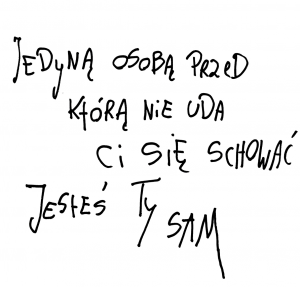 JEDYNĄ OSOBĄ PRZED
KTÓRĄ NIE UDA
CI SIĘ SCHOWAĆ
JESTEŚ TY
SAM